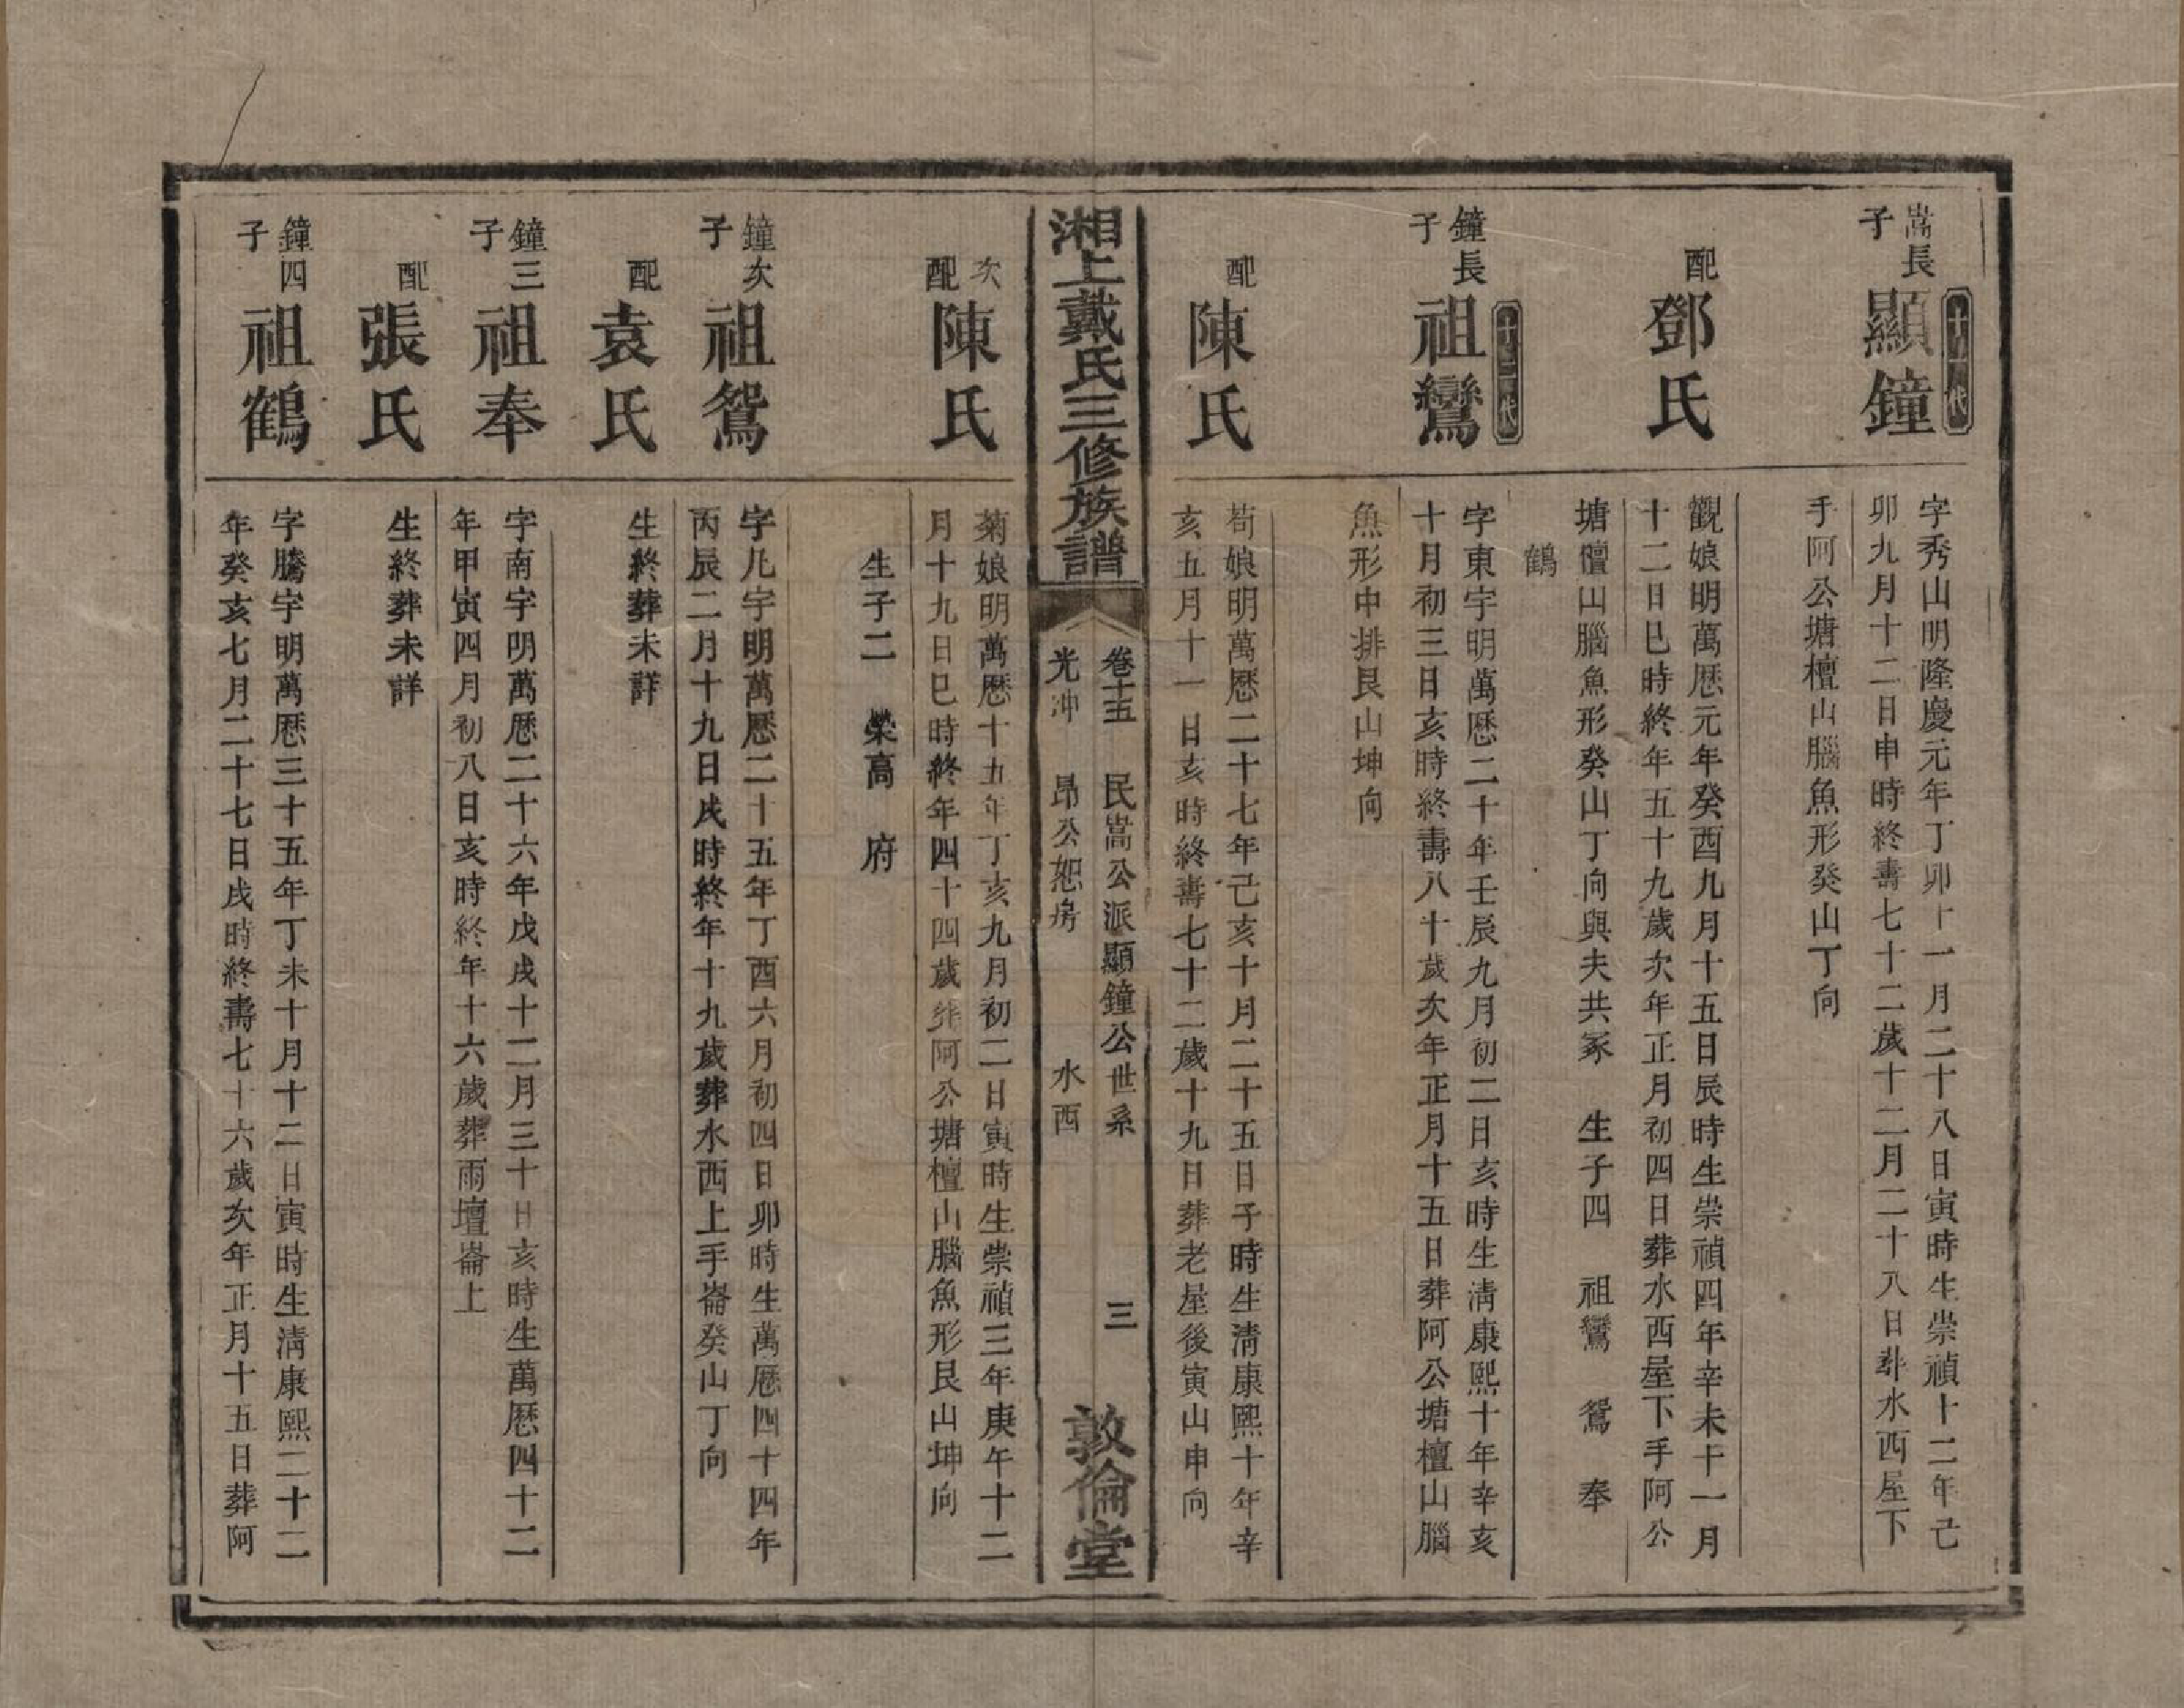 十一代
嵩長子
顯鐘
字秀山明隆慶元年丁卯十一月二十八日寅時生崇禎十二年己
卯九月十二日申時終壽七十二歲十二月二十八日葬水西屋下
手阿公塘檀山腦魚形癸山丁向
配
鄧氏
觀娘明萬歷元年癸酉九月十五日辰時生崇禎四年辛未十一月
十二日巳時終年五十九歲次年正月初四日葬水西屋下手阿公
塘檀山腦魚形癸山丁向與夫共冢 生子四 祖鸞 鴛 奉
鶴
十二代
鐘長子
祖鸞
字東宇明萬歷二十年壬辰九月初二日亥時生清康熙十年辛亥
十月初三日亥時終壽八十歲次年正月十五日葬阿公塘檀山腦
魚形中排艮山坤向
配
陳氏
荀娘明萬歷二十七年己亥十月二十五日子時生清康熙十年辛
亥五月十一日亥時終壽七十二歲十九日葬老屋後寅山申向
湘上戴氏三修族譜
卷十五 民嵩公派顯鐘公世系 三
光冲 昂公恕房 水西
敦倫堂
次配
陳氏
菊娘明萬歷十五年丁亥九月初二日寅時生崇禎三年庚午十二
月十九日巳時終年四十四歲葬阿公塘檀山腦魚形艮山坤向
生子二 榮高 府
鐘次子
祖鴛
字凡宇明萬歷二十五年丁酉六月初四日卯時生萬歷四十四年
丙辰二月十九日戌時終年十九歲葬水西上手崙癸山丁向
配
袁氏
生終葬未詳
鐘三子
祖奉
字南宇明萬歷二十六年戊戌十二月三十日亥時生萬歷四十二
年甲寅四月初八日亥時終年十六歲葬雨壇崙上
配
張氏
生終葬未詳
鐘四子
祖鶴
字騰宇明萬歷三十五年丁未十月十二日寅時生清康熙二十二
年癸亥七月二十七日戌時終壽七十六歲次年正月十五日葬阿